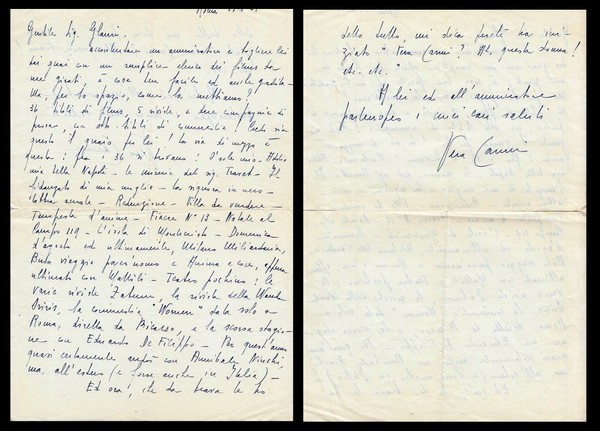 Roma
Gentile Sig.
accontentare un ammiratore e togliere lei
dai guai con un semplice elenco dei films da
me girati è cosa ben facile ed anche gradita.
Ma per lo spazio, come la mettiamo?
36 titoli di films, 5 riviste, e due compagnie di
prosa, con otto titoli di commedia! Credo sia
questo il guaio per lei! La via di mezzo è
questa: fra i 36 vi troviamo: O' sole mio - Addio
mia bella Napoli - le miserie del sig. Travet - Il
fidanzato di mia moglie - la signora in nero -
L'abba - Redenzione - Villa da vendere -
Tempesta d'anime - Fiacre N° 13 - Natale al
Campo 119 - L'isola di Montecristo - Domenica
d'agosto ed ultimamente, Milano Miliardaria,
Buon viaggio pover'uomo e Anima e core, appena
ultimato con Mattòli - Teatro pochino: le
varie riviste Za-bum, la rivista della Wanda
Osiris, la commedia "Women" data solo a
Roma, diretta da , e la scorsa stagio-
ne con Eduardo De Filippo - Per quest'anno
quasi certamente andrò con Annibale Ninchi,
ma, all'estero (e forse anche in Italia) -
Ed ora, che da brava le ho
detto tutto, mi dica perchè ha ini-
ziato "Vera Carmi? Ah, questa donna!
etc. etc."
A lei ed all'ammiratore
partenopeo i miei cari saluti
Vera Carmi